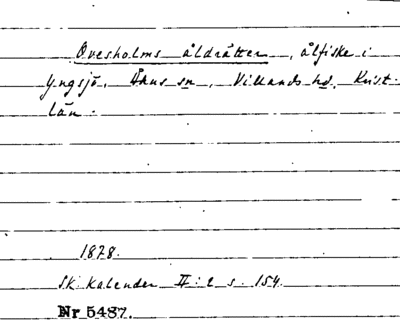 Övesholms åldrätter, ålfiske i
Yngsjö, Åhus sn, Villands hd, Krist.
län.
1878.
Sk. kalender II: 2 s. 154.
Nr 5487.